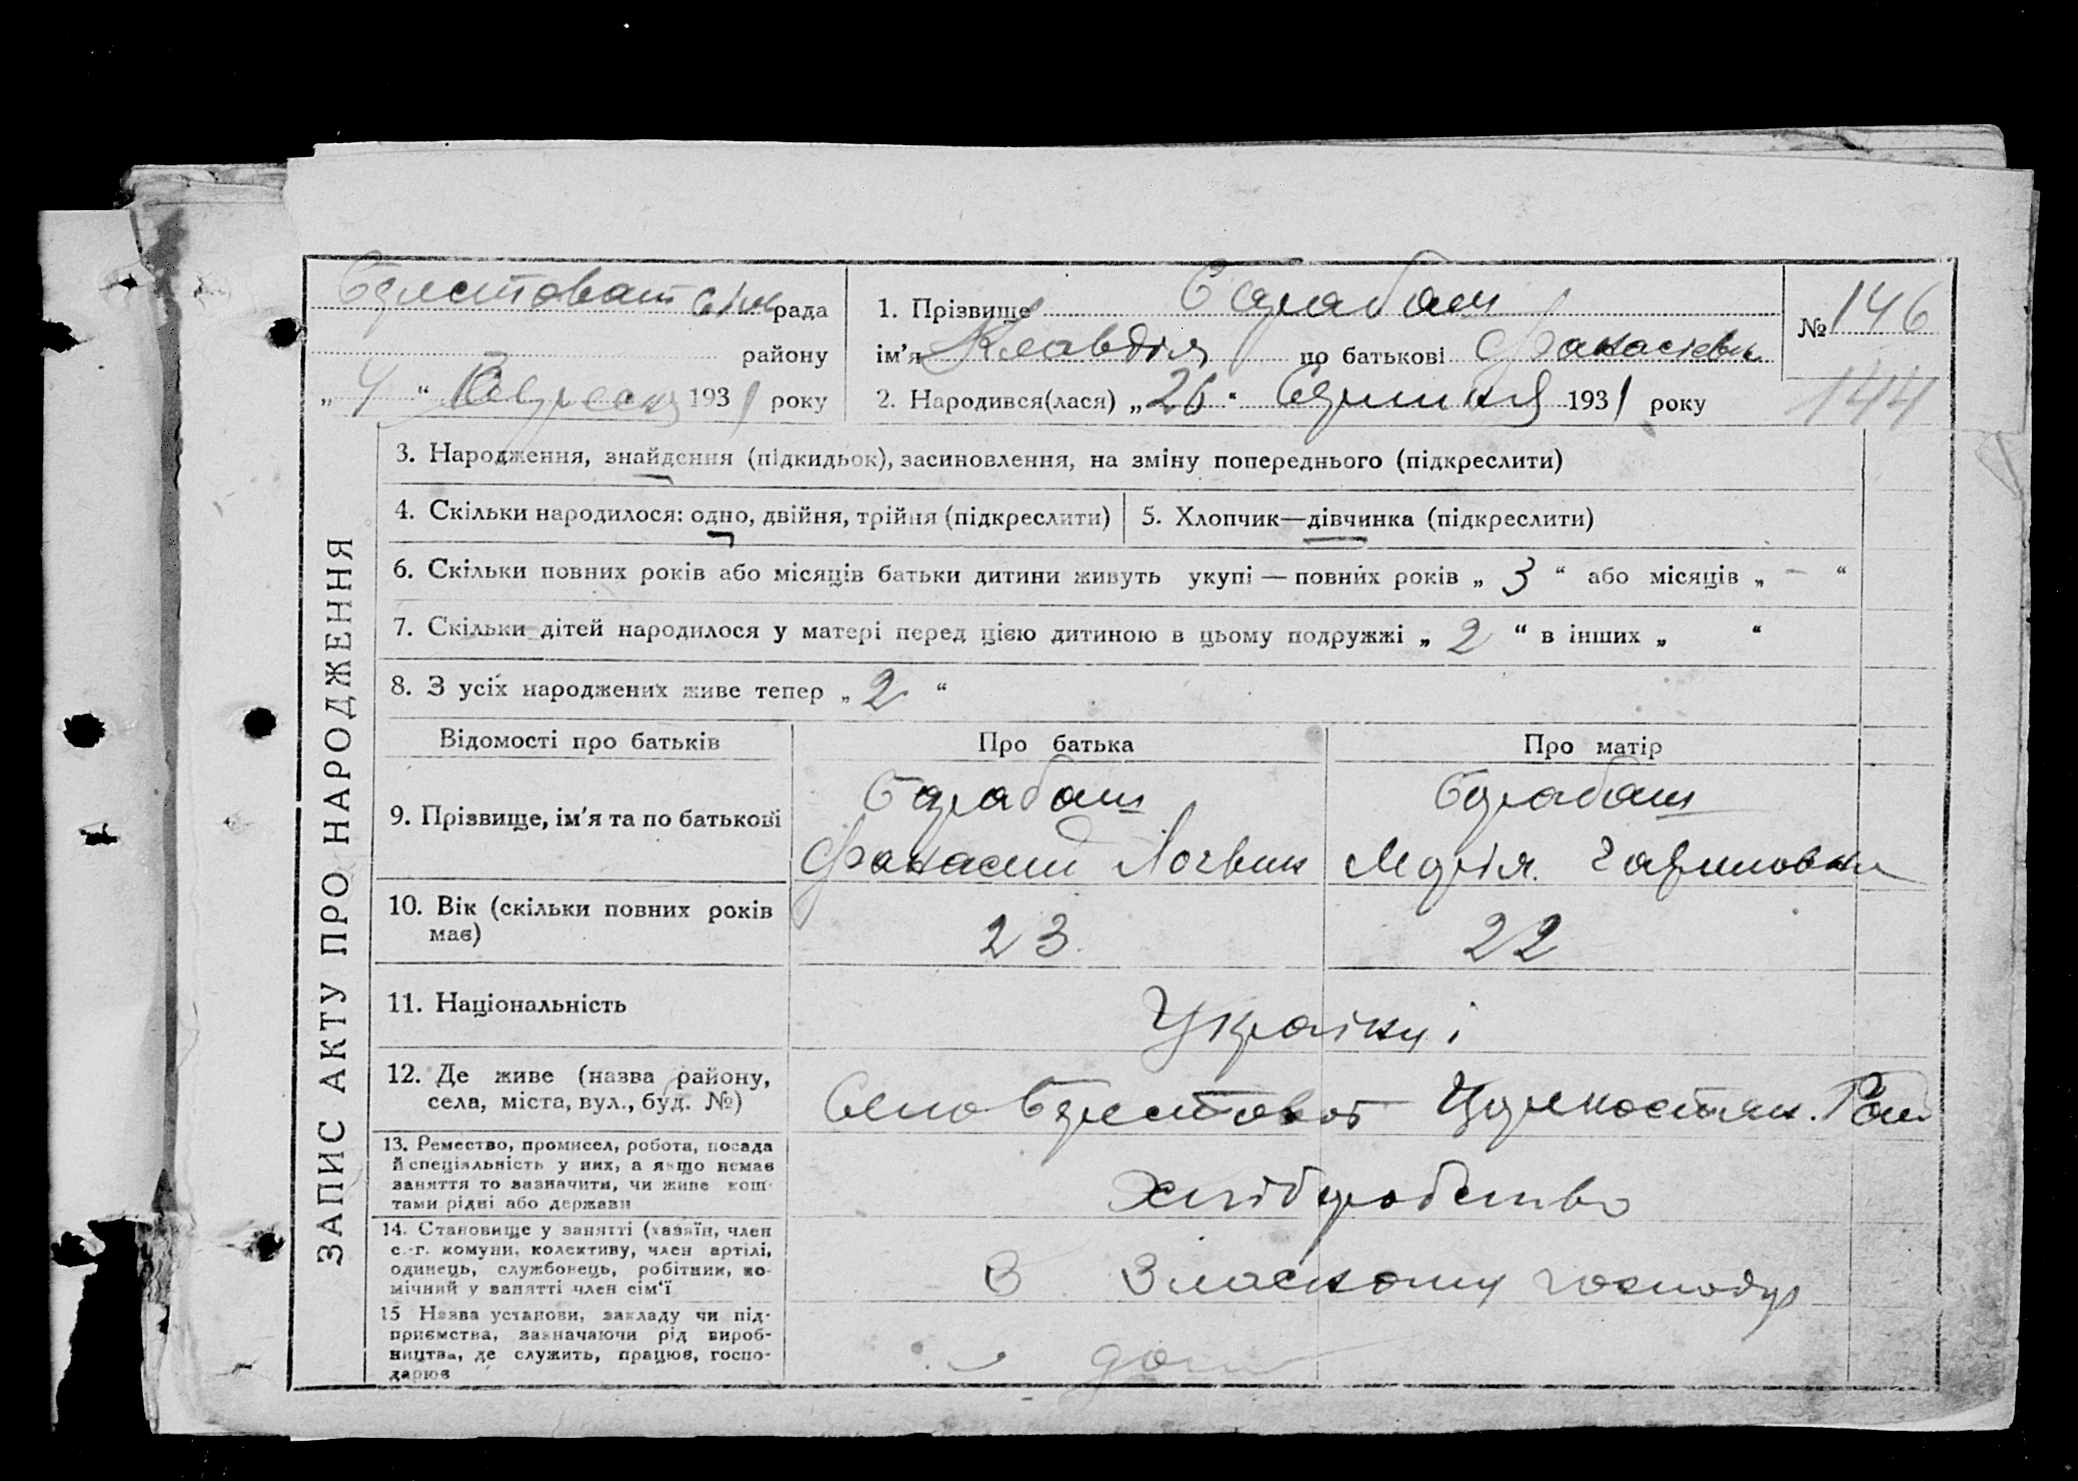 Берестоват сільрада
району
„ 4 “ Вересня 1931 року
1. Прізвище Барабаш
ім'я Клавдія по батькові Фанасіевн
2. Народився(лася) „26“ Серпня 1931 року
№ 146
144
ЗАПИС АКТУ ПРО НАРОДЖЕННЯ
3. Народження, знайдення (підкидьок), засиновлення, на зміну попереднього (підкреслити)
4. Скільки народилося: одно, двійня, трійня (підкреслити)
5. Хлопчик—дівчинка (підкреслити)
6. Скільки повних років або місяців батьки дитини живуть укупі — повних років „ 3 “ або місяців „ – “
7. Скільки дітей народилося у матері перед цією дитиною в цьому подружжі „ 2 “ в інших „ “
8. З усіх народжених живе тепер „ 2 “
Відомості про батьків
Про батька
Про матір
9. Прізвище, ім'я та по батькові
Барабаш
Фанасий Логвин
Барабаш
Марія Гавриловна
10. Вік (скільки повних років
має)
23
22
11. Національність
Українці
12. Де живе (назва району,
села, міста, вул., буд. №)
Село Берестоват
13. Ремество, промисел, робота, посада
й спеціяльність у них, а якщо немає
заняття то зазначити, чи живе кош-
тами рідні або держави
Хліборобство
14. Становище у занятті (хазяїн, член
с.-г. комуни, колективу, член артілі,
одинець, службовець, робітник, по-
мічний у занятті член сім'ї
В Власному господар
15 Назва установи, закладу чи під-
приємства, зазначаючи рід вироб-
ництва, де служить, працює, госпо-
дарює